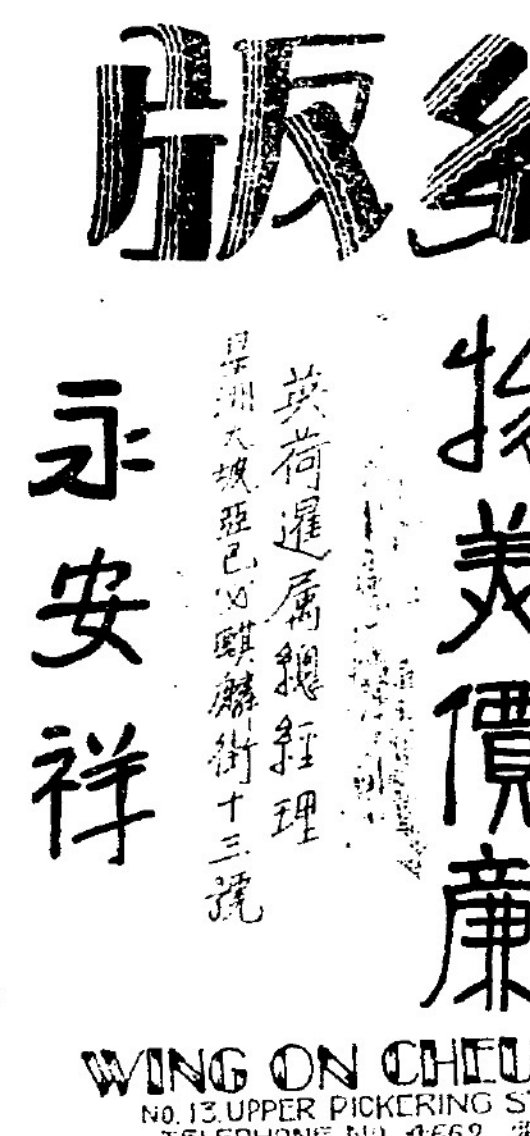 版
物美價廉
英荷暹属總經理
星洲大坡亞巴必麒麟街十三號
永安祥
WING ON CHEU
NO.13.UPPER PICKERING
TELEPHONE NO.